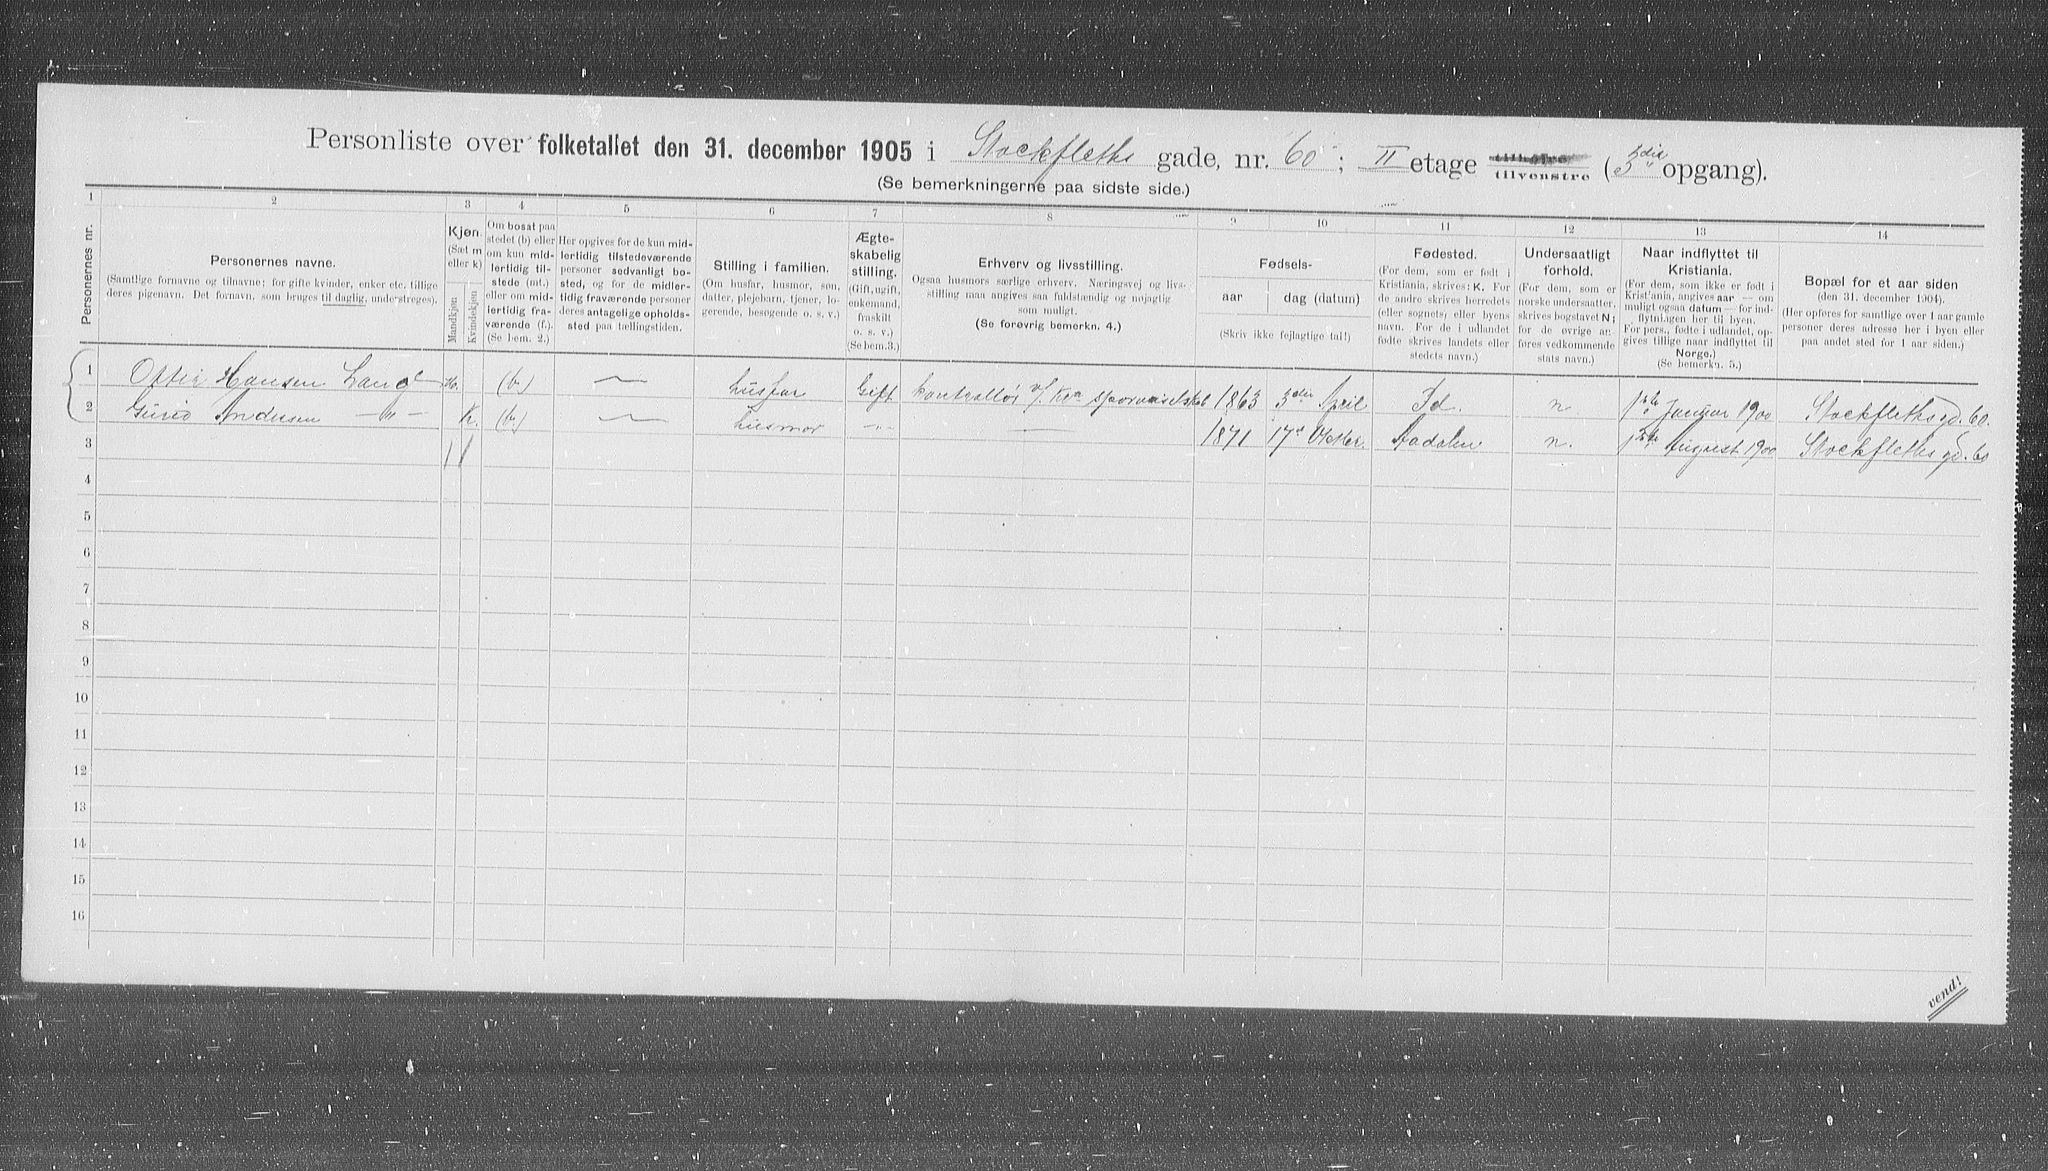 Personliste over folketallet den 31. december 1905 i Stockfleths gade, nr. 60; II etage tilhøire tilvenstre (3die opgang).
(Se bemerkningerne paa sidste side.)
1 2 3 4 5 6 7 8 9 10 11 12 13 14
Personernes nr.
Personernes navne.
(Samtlige fornavne og tilnavne; for gifte kvinder, enker etc. tillige
deres pigenavn. Det fornavn, som bruges til daglig, understreges).
Kjøn.
(Sæt m
eller k)
Mandkjøn
Kvindekjøn
Om bosat paa
stedet (b) eller
om kun mid-
lertidig til-
stede (mt.)
eller om mid-
lertidig fra-
værende (f.).
(Se bem. 2.)
Her opgives for de kun mid-
lertidig tilstedeværende
personer sedvanligt bo-
sted, og for de midler-
tidig fraværende personer
deres antagelige opholds-
sted paa tællingstiden.
Stilling i familien.
(Om husfar, husmor, søn,
datter, plejebarn, tjener, lo-
gerende, besøgende o. s. v.)
Ægte-
skabelig
stilling.
(Gift, ugift,
enkemand,
fraskilt
o. s. v.)
(Se bem.3.)
Erhverv og livsstilling.
Ogsaa husmors særlige erhverv. Næringsvej og livs-
stilling maa angives saa fuldstændig og nøjagtig
som muligt.
(Se forøvrig bemerkn. 4.)
Fødsels-
aar
dag (datum)
(Skriv ikke fejlagtige tal!)
Fødested.
(For dem, som er født i
Kristiania, skrives: K. For
de andre skrives herredets
(eller sognets) eller byens
navn. For de i udlandet
fødte skrives landets eller
stedets navn.)
Undersaatligt
forhold.
(For dem, som er
norske undersaatter,
skrives bogstavet N;
for de øvrige an-
føres vedkommende
stats navn.)
Naar indflyttet til
Kristiania.
(For dem, som ikke er født i
Krist'ania, angives aar — om
muligt ogsaa datum — for ind-
flytningen her til byen.
For pers., fødte i udlandet, op-
gives tillige naar indflyttet til
Norge.)
(Se bemerkn. 5.)
Bopæl for et aar siden
(den 31. december 1904).
(Her opføres for samtlige over 1 aar gamle
personer deres adresse her i byen eller
paa andet sted for 1 aar siden.)
1 Hansen Lang M. (b) — husfar Gift kontrollør v/ Kra sporveiselskab 1863 3die April Id. n 1ste Januar 1900 Stockflethsgd. 60.
2 Gurid Andersen —"— K. (b) — husmor —"— — 1871 17de Oktbr. Aadalen n. 1ste August 1900 Stockflethsgd. 60
3
4
5
6
7
8
9
10
11
12
13
14
15
16
vend!